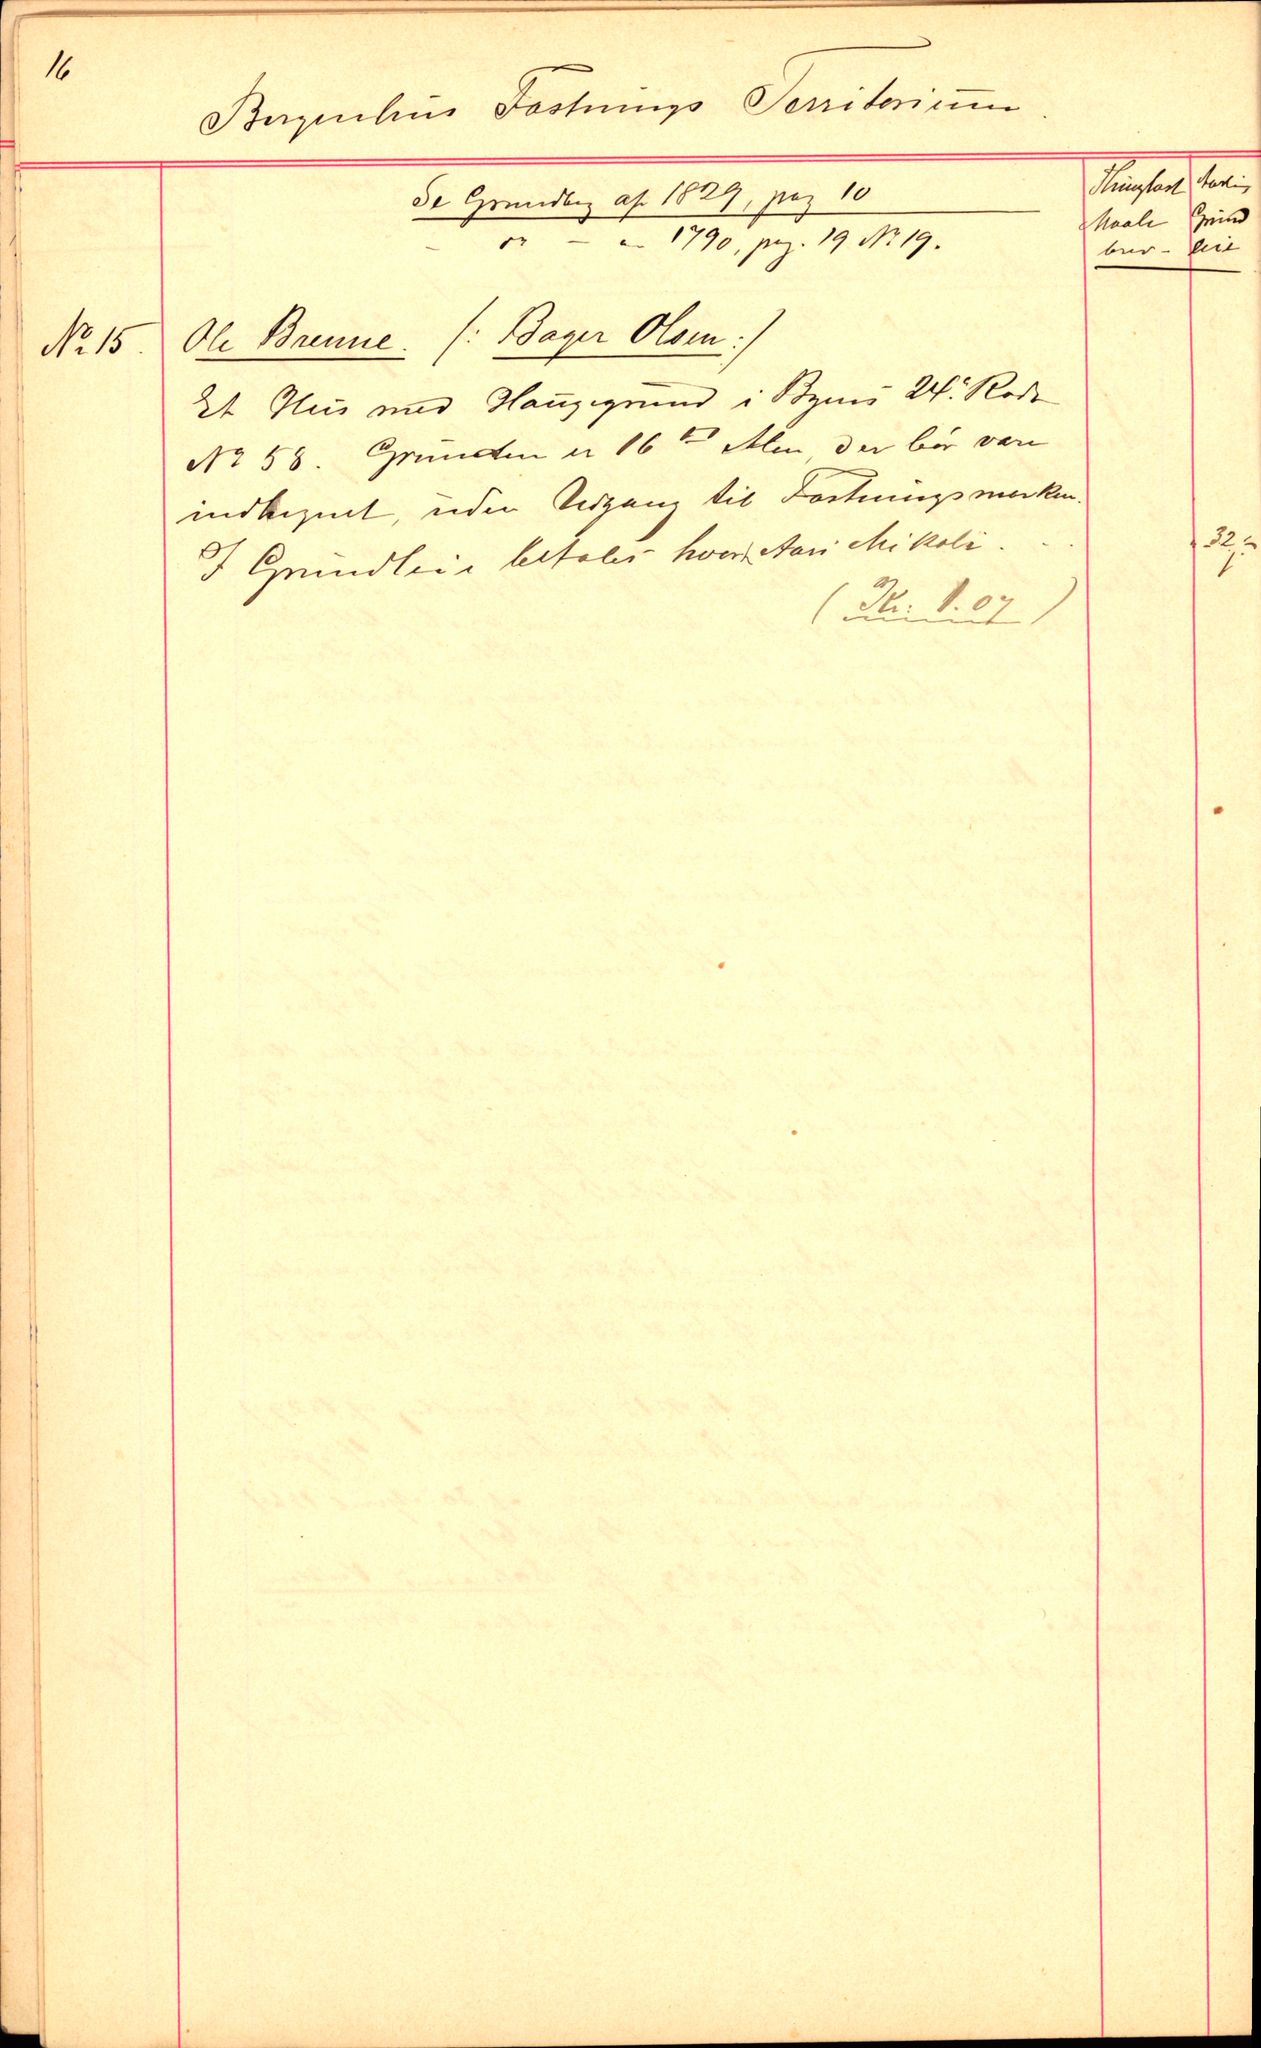 16
Bergenhus Fæstnings Territorium.
Se Grundbog af 1829, pag 10
- do - " 1790, pag. 19 No 19.
Thinglæst Maale brev -
Aarlig Grund leie
No 15. Ole Brenne. (: Bager Olsen :)
Et Hus med Haugegrund i Byens 24de Rode
No 58. Grunden er 16 Alen, der bör være
indhegnet, uden Udgang til Fæstningsmarken.
I Grundleie betales hvert Aars Mikeli . . .
32
(Kr. 1.07)